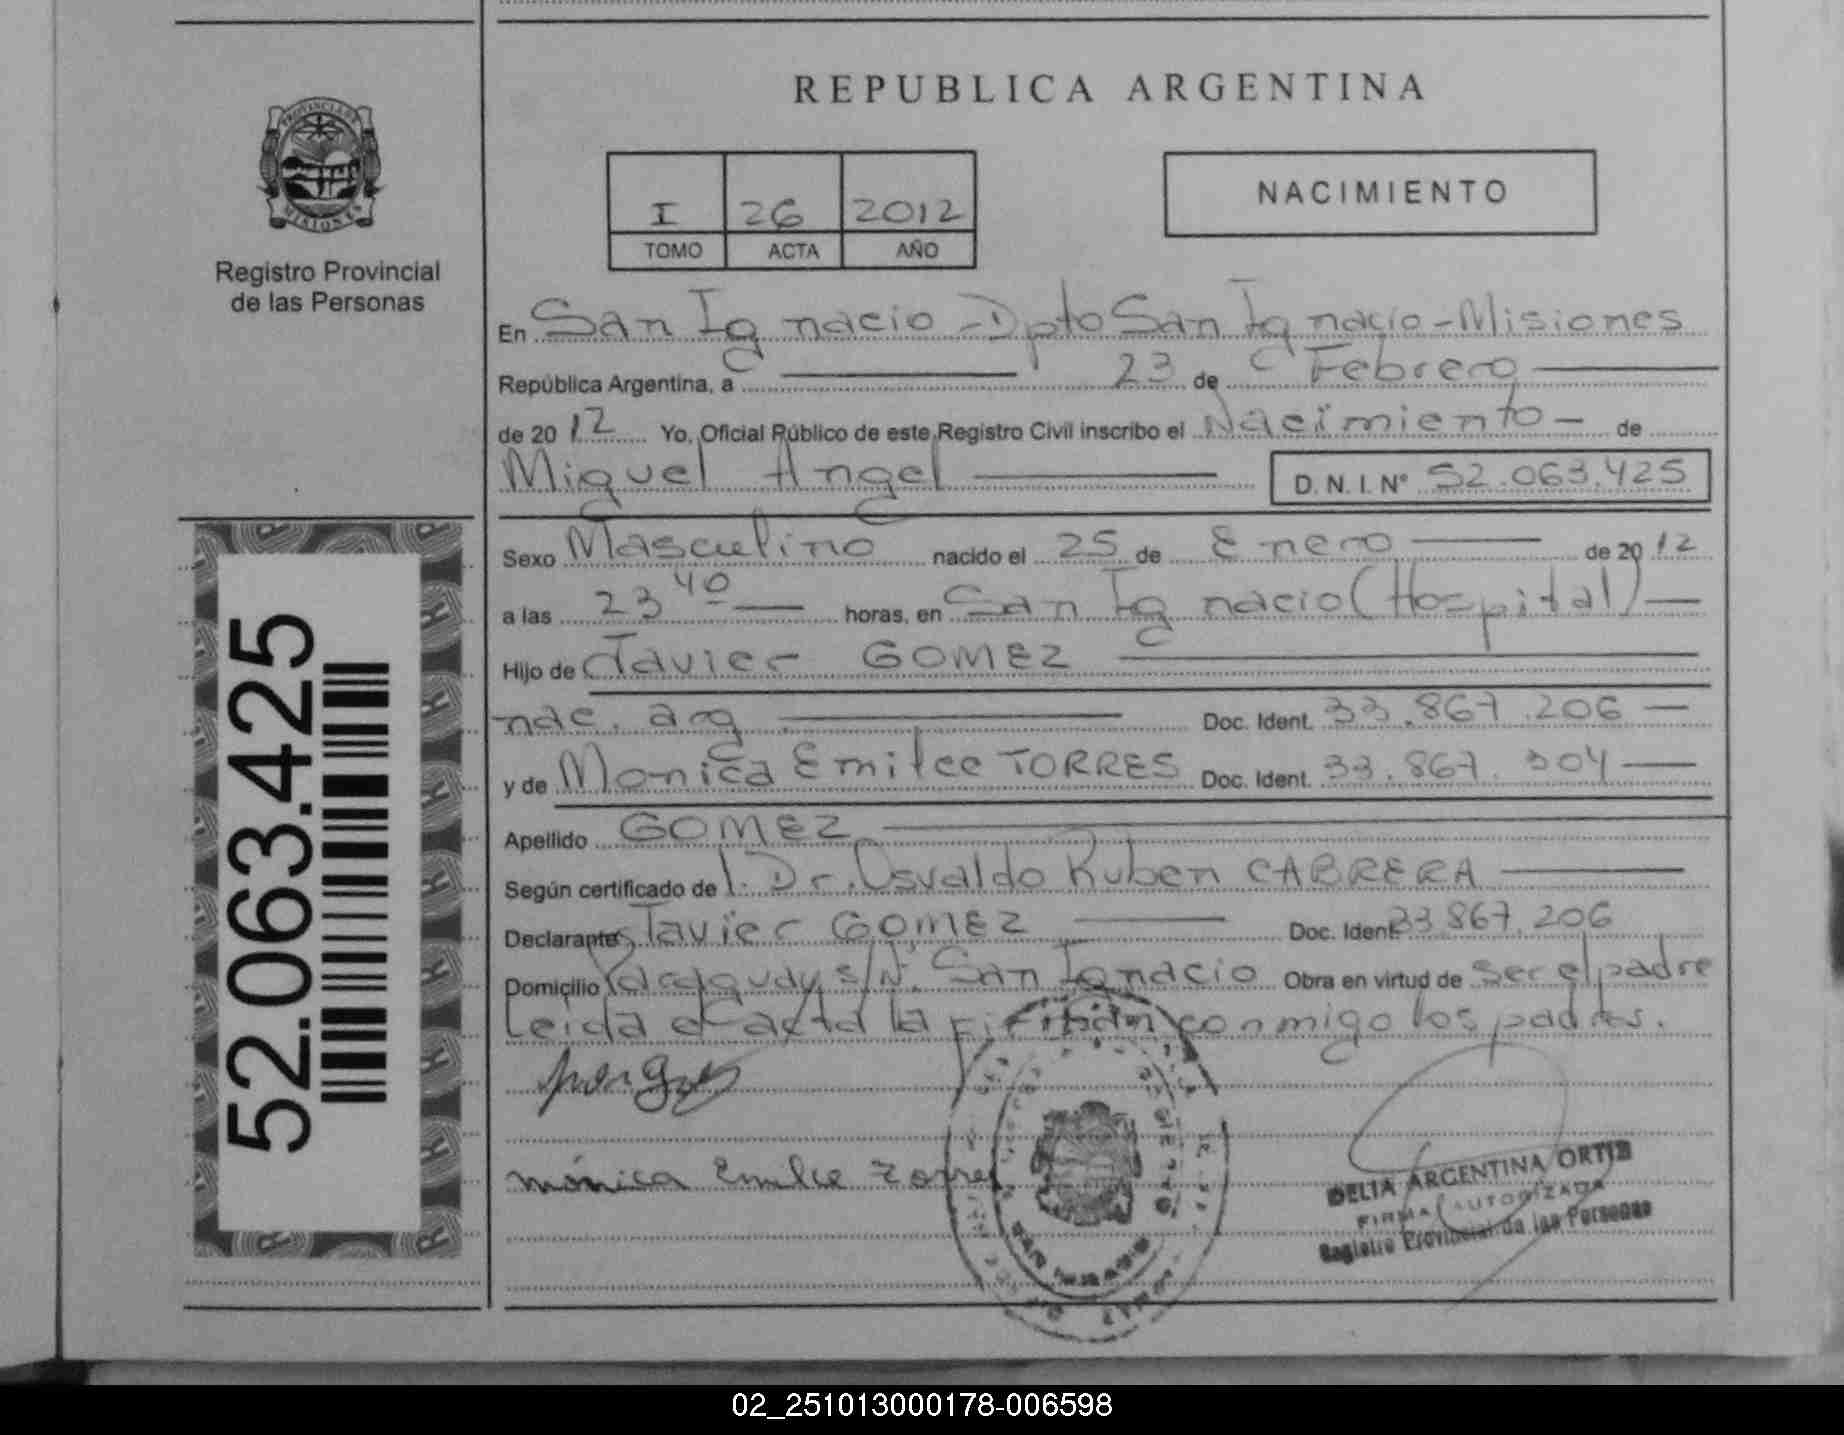 PROVINCIA DE
MISIONES
Registro Provincial
de las Personas
52.063.425
REPUBLICA ARGENTINA
I 26 2012
TOMO ACTA AÑO
NACIMIENTO
En San Ignacio - Dpto San Ignacio - Misiones
República Argentina, a 23 de Febrero
de 2012 Yo, Oficial Público de este Registro Civil inscribo el Nacimiento - de
Miguel Angel D. N. I. N° 52.063.425
Sexo Masculino nacido el 25 de Enero de 2012
a las 23 40 horas, en San Ignacio (Hospital)
Hijo de Javier GOMEZ
nac. arg Doc. Ident. 33.867.206
y de Monica Emilce TORRES Doc. Ident. 33.867.304
Apellido GOMEZ
Según certificado de l. Dr. Osvaldo Ruben CABRERA
Declarante Javier GOMEZ Doc. Ident. 33867.206
Domicilio Paraguay s/N. San Ignacio Obra en virtud de ser el padre
Leida el acta la firman conmigo los padres.
mónica Emilce Torres
DELIA ARGENTINA ORTIZ
FIRMA AUTORIZADA
Registro Provincial de las Personas
02_251013000178-006598